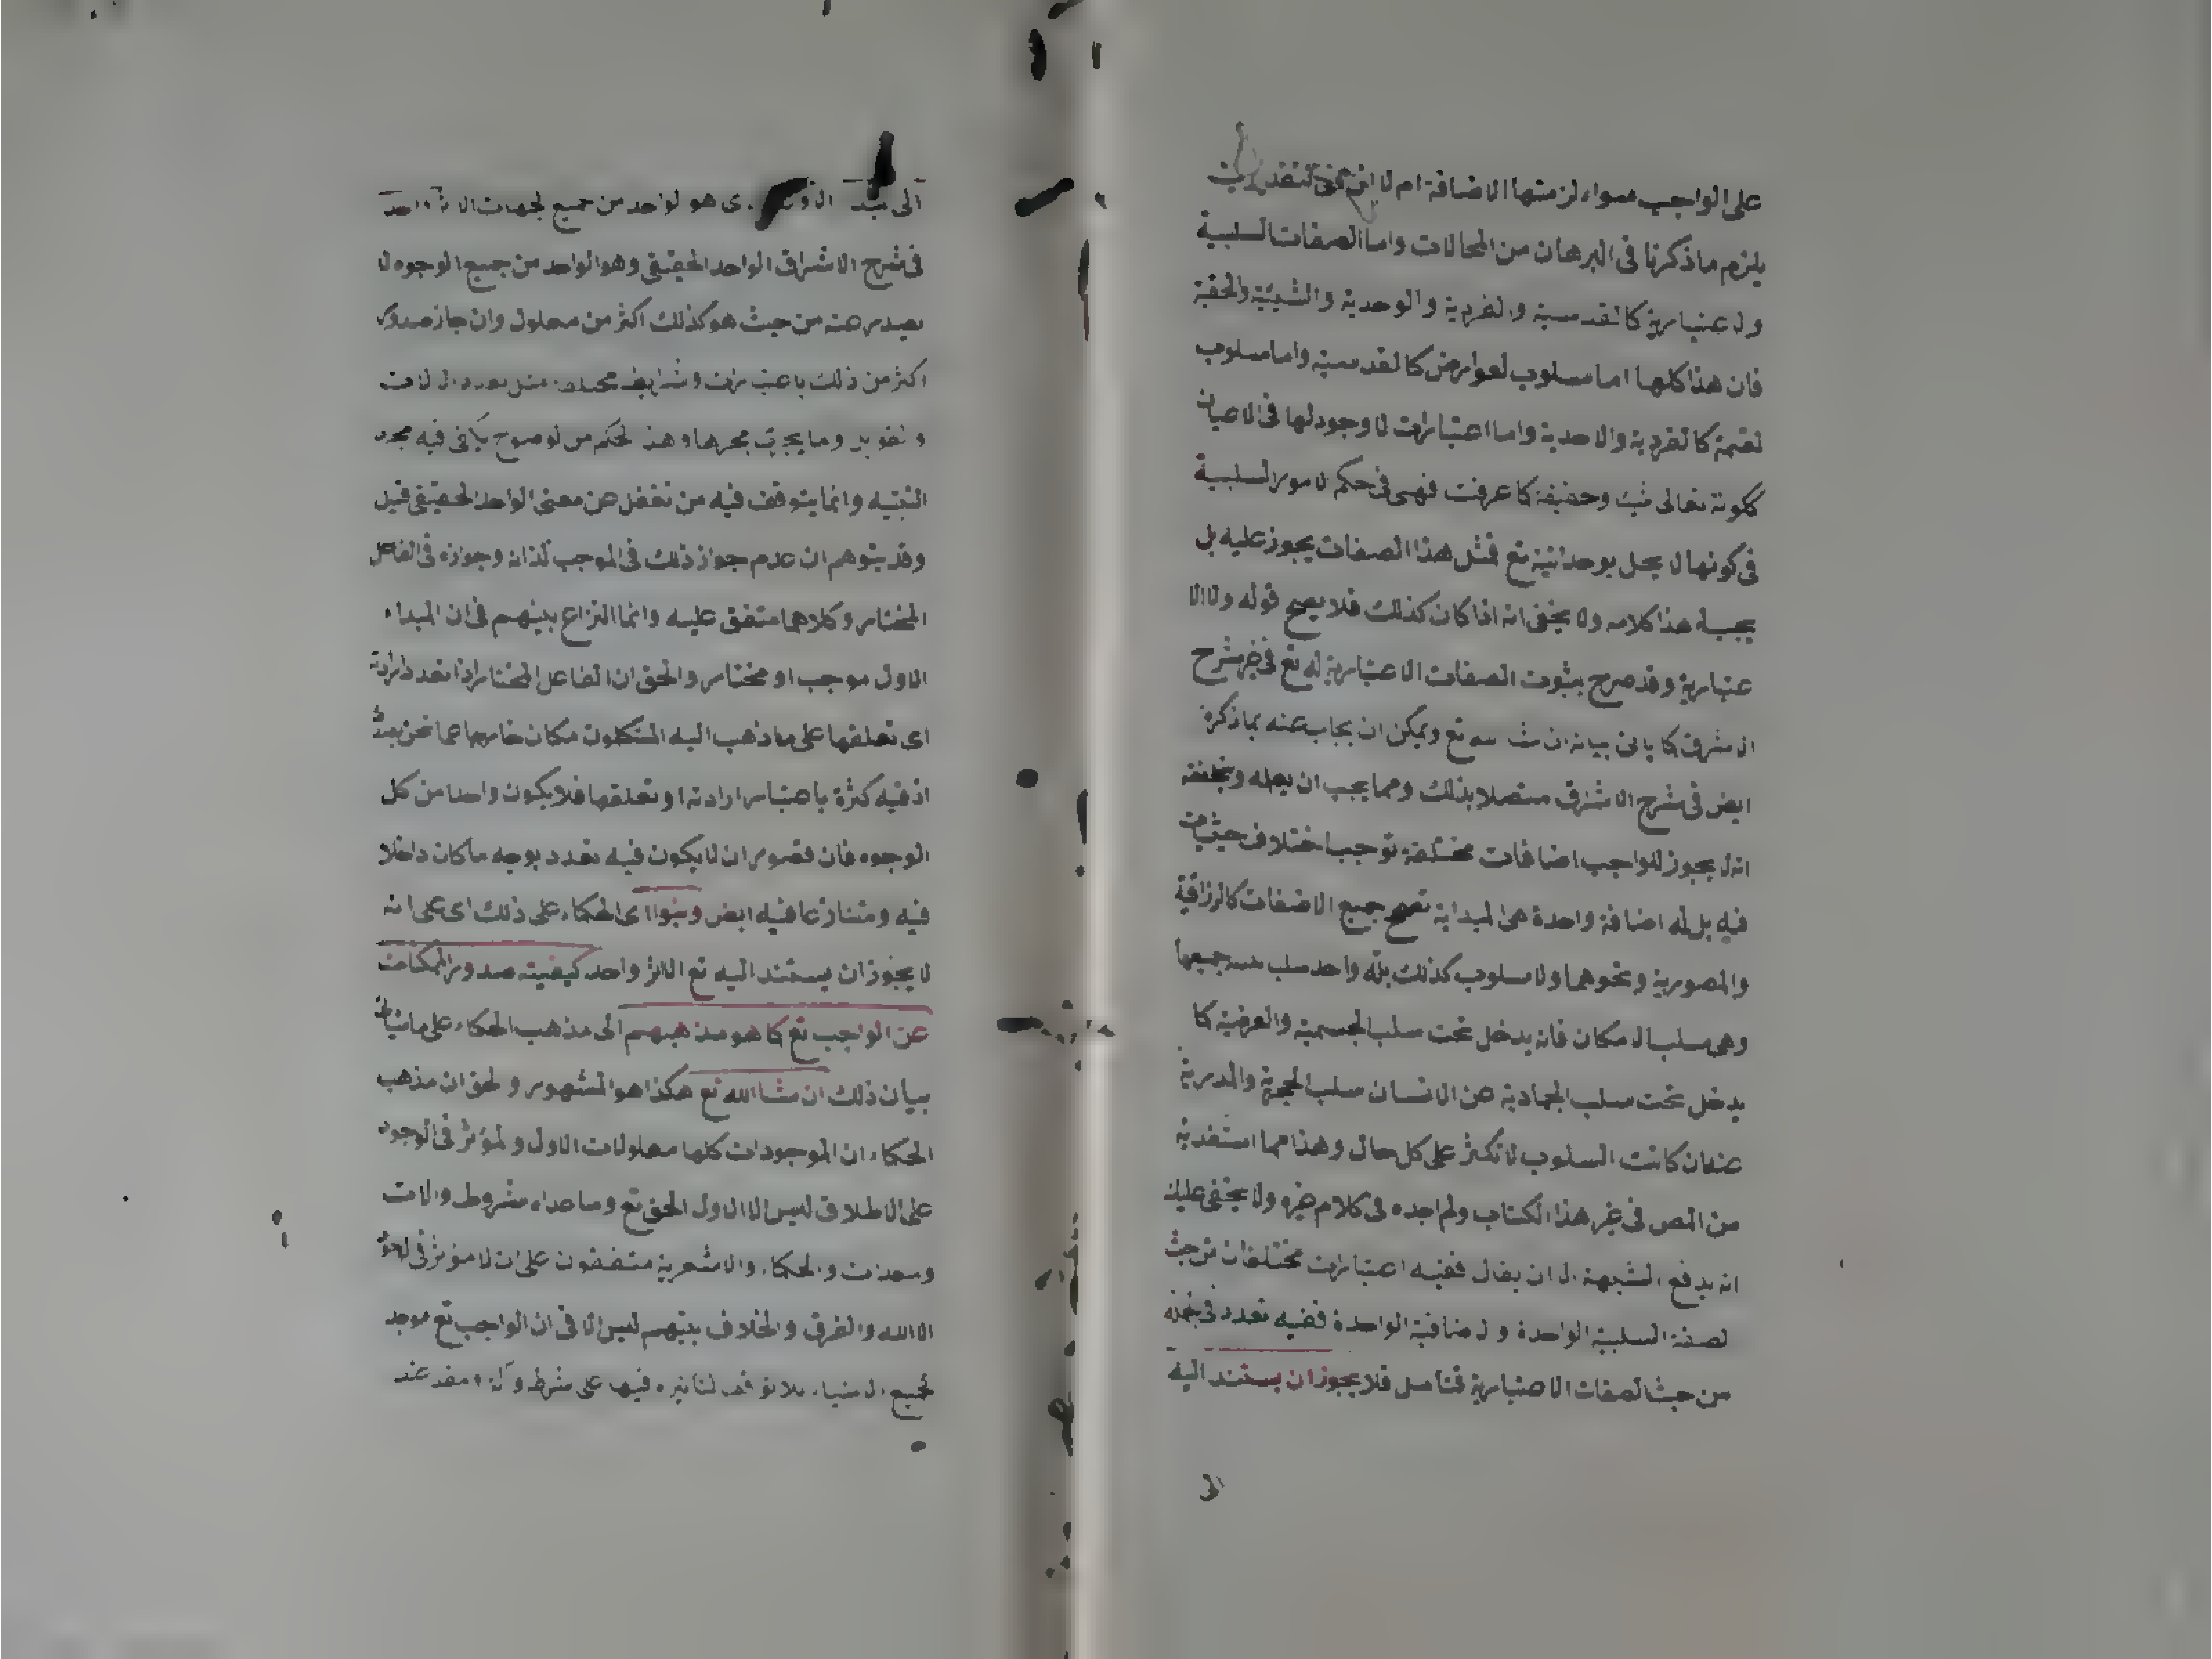 على الواجب سواء لزمتها الاضافة ام لا
يلزم ما ذكرنا فى البرهان من المحالات واما الصفات السلبية
والاعتبارية كالقدسية والفردية والوحدية والشيئية والحقية
فان هذا كلها اما سلوب لعوارض كالقدسية واما سلوب
لقسمة كالفردية والاحدية واما اعتبارات لا وجود لها فى الاعيان
ككونه تعالى شيئا وحقيقة كما عرفت فهى فى حكم الامور السلبية
فى كونها لا يخل بوحدانيته تع فمثل هذا الصفات يجوز عليه بل
يجب له هذا كلامه ولا يخفى انه اذا كان كذلك فلا يصح قوله ولا الا
عتبارية وقد صرح بثبوت الصفات الاعتبارية له تع فى شرح
الاشراق كما ياتى بيانه ان شا الله تع ويمكن ان يجاب عنه بما ذكره
ايض فى شرح الاشراق متصلا بذلك ومما يجب ان يعلم وتحققه
انه لا يجوز للواجب اضافات مختلفة توجب اختلاف حيثيات
فيه بل له اضافة واحدة هى المبداية تصحح جميع الاضفات كالرزاقية
والمصورية ونحوهما ولا سلوب كذلك بل له واحد سلب جميعها
وهى سلب الامكان فانه يدخل تحت سلب الجسمية والعرضية كما
يدخل تحت سلب الجمادية عن الانسان سلب الحجرية والمدرية
عنه ان كانت السلوب لا تكثر على كل حال وهذا مما استفدته
من المص فى غير هذا الكتاب ولم اجده فى كلام غيره ولا يخفى عليك
انه يدفع الشبهة الا ان يقال ففيه اعتباران مختلفان من حيث
لصفة السلبية الواحدة والاضافية الواحدة ففيه تعدد
من حيث الصفات الاعتبارية فتامل فلا يجوز ان يستند اليه
الى هو الواحد من جميع الجهات الا واحد
فى شرح الاشراق الواحد الحقيقى وهو الواحد من جميع الوجوه لا
يصدر عنه من حيث هو كذلك اكثر من معلول وان جاز صدور
اكثر من ذلك باعتبارات وشرايط مثل تعدد الالات
والقوابل وما يجرى مجراها وهذا الحكم من الوضوح يكفى فيه مجرد
التنبيه وانما يتوقف فيه من تغفل عن معنى الواحد الحقيقى قيل
وقد يتوهم ان عدم جواز ذلك فى الموجب لذاته وجوازه فى الفاعل
المختار وكلاهما متفق عليه وانما النزاع بينهم فى ان المبداء
الاول موجب او مختار والحق ان الفاعل المختار اذا تعدد ارادته
اى تعلقها على ما ذهب اليه المتكلمون مكان خارجا عما نحن بصدده
اذ فيه كثرة باعتبار ارادته او تعلقها فلا يكون واحدا من كل
الوجوه فان فصور ان لا يكون فيه تعدد بوجه ما كان داخلا
فيه ومتنازعا فيه ايض وبنوا اى الحكماء على ذلك اى على انه
لا يجوز ان يستند اليه تع الا اثر واحد كيفيته صدور الممكنات
عن الواجب تع كما هو مذهبهم الى مذهب الحكماء على ما سياتى
بيان ذلك ان شا الله تع هكذا هو المشهور والحق ان مذهب
الحكماء ان الموجودات كلها معلولات الاول والمؤثر فى الوجود
على الاطلاق ليس الا الاول الحق تع وما عداه شروط والات
ومعدات والحكماء والاشعرية متفقون على ان لا مؤثر فى
الا الله والفرق والخلاف بينهم ليس الا فى ان الواجب تع موجد
لجميع الاشياء بلا توقف لتاثيره فيها على شرط وآلة ومعد عند